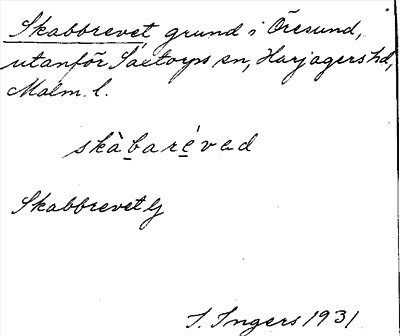 Skabbrevet, grund i Öresund,
utanför Saxtorps sn, Harjagers hd,
Malm. l.
skàbarévad
Skabbrevet G
I. Ingers 1931